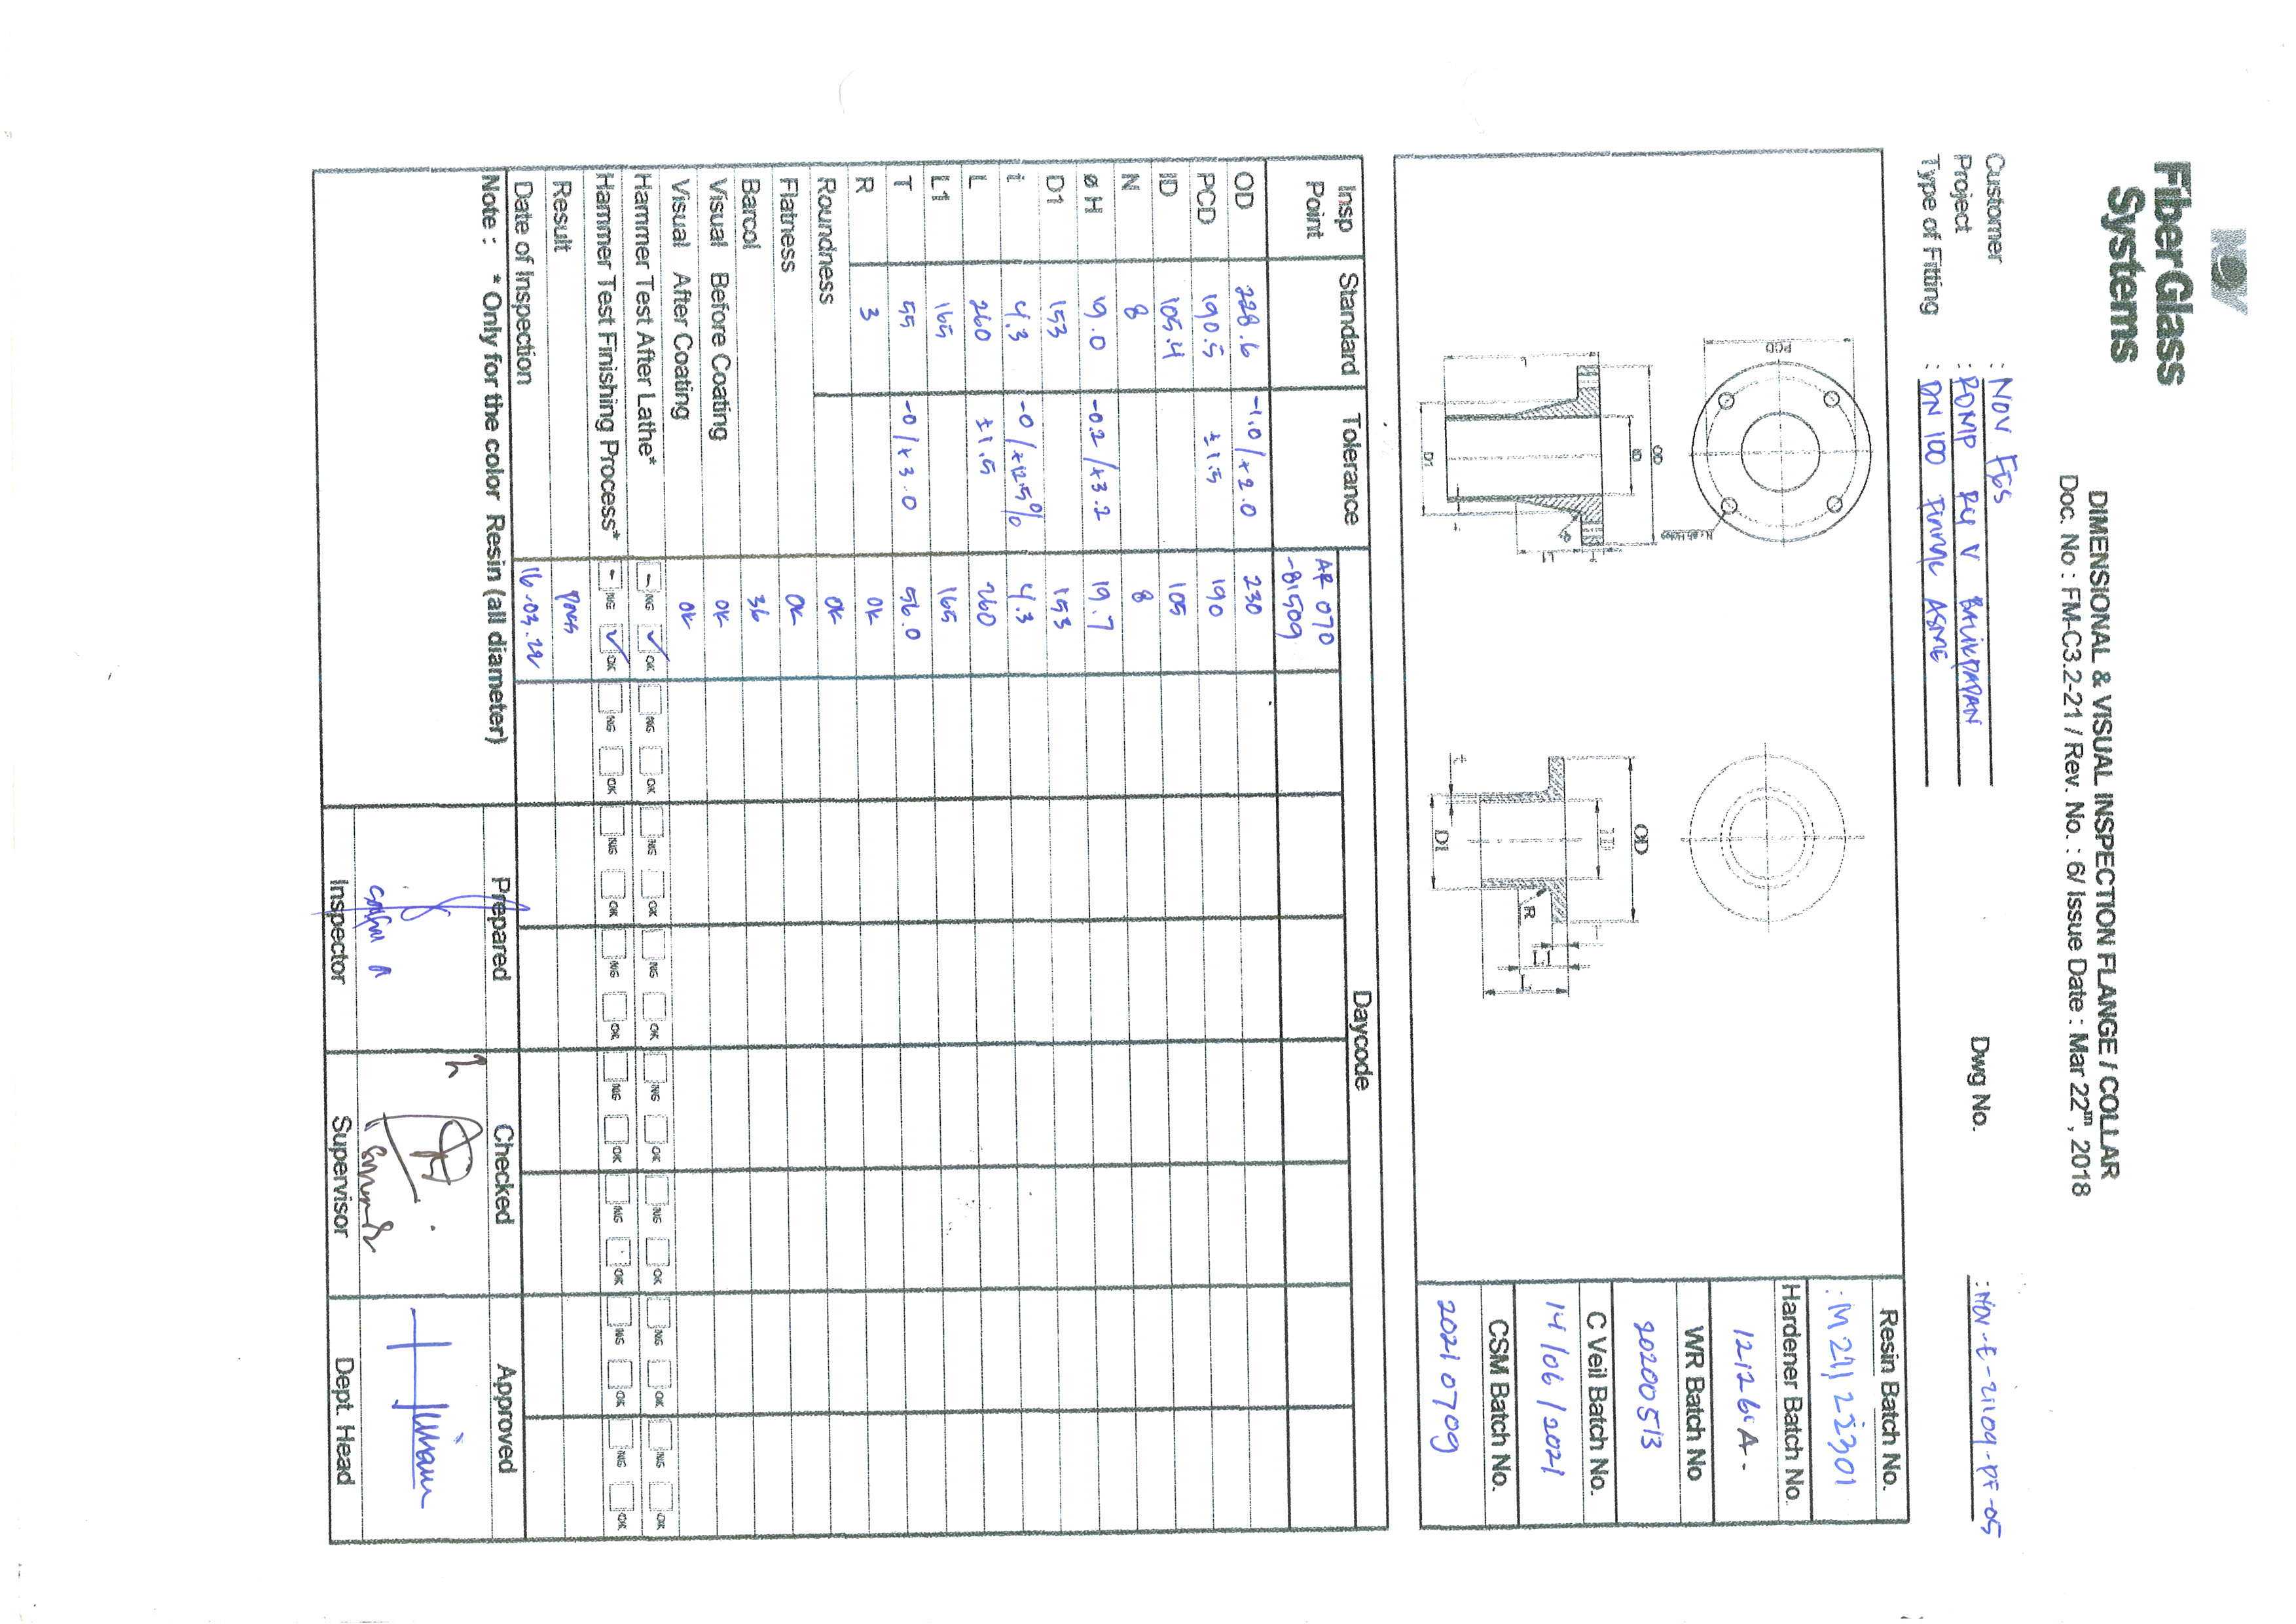 NOV
FiberGlass
Systems
DIMENSIONAL & VISUAL INSPECTION FLANGE / COLLAR
Doc. No : FM-C3.2-21 / Rev. No. : 6/ Issue Date : Mar 22nd, 2018
Customer : NOV FGS
Project : RDMP RU V BALIKPAPAN
Type of Fitting : DN 100 ASME
Dwg No. : NOV-E-21109-PF-05
PCD
OD
ID
D1
OD
ID
D1
R
L1
L
t
Resin Batch No.
: M211123301
Hardener Batch No.
121261A-
WR Batch No
20200513
C Veil Batch No.
14/06/2021
CSM Batch No.
20210709
Insp Point Standard Tolerance Daycode
AR 070
-81509
OD 228.6 -1.0/+2.0 230
PCD 190.5 ±1.5 190
ID 105.4 105
N 8 8
ø H 19.0 -0.2/+3.2 19.7
D1 153 153
t 4.3 -0/+12.5% 4.3
L 260 ±1.5 260
L1 165 165
T 55 -0/+3.0 56.0
R 3 OK
Roundness OK
Flatness OK
Barcol 36
Visual Before Coating OK
Visual After Coating OK
Hammer Test After Lathe* - NG ✓ OK NG OK NG OK NG OK NG OK NG OK NG OK NG OK
Hammer Test Finishing Process* - NG ✓ OK NG OK NG OK NG OK NG OK NG OK NG OK NG OK
Result Pass
Date of Inspection 16-03-22
Note : * Only for the color Resin (all diameter)
Prepared Checked Approved
Inspector Supervisor Dept. Head